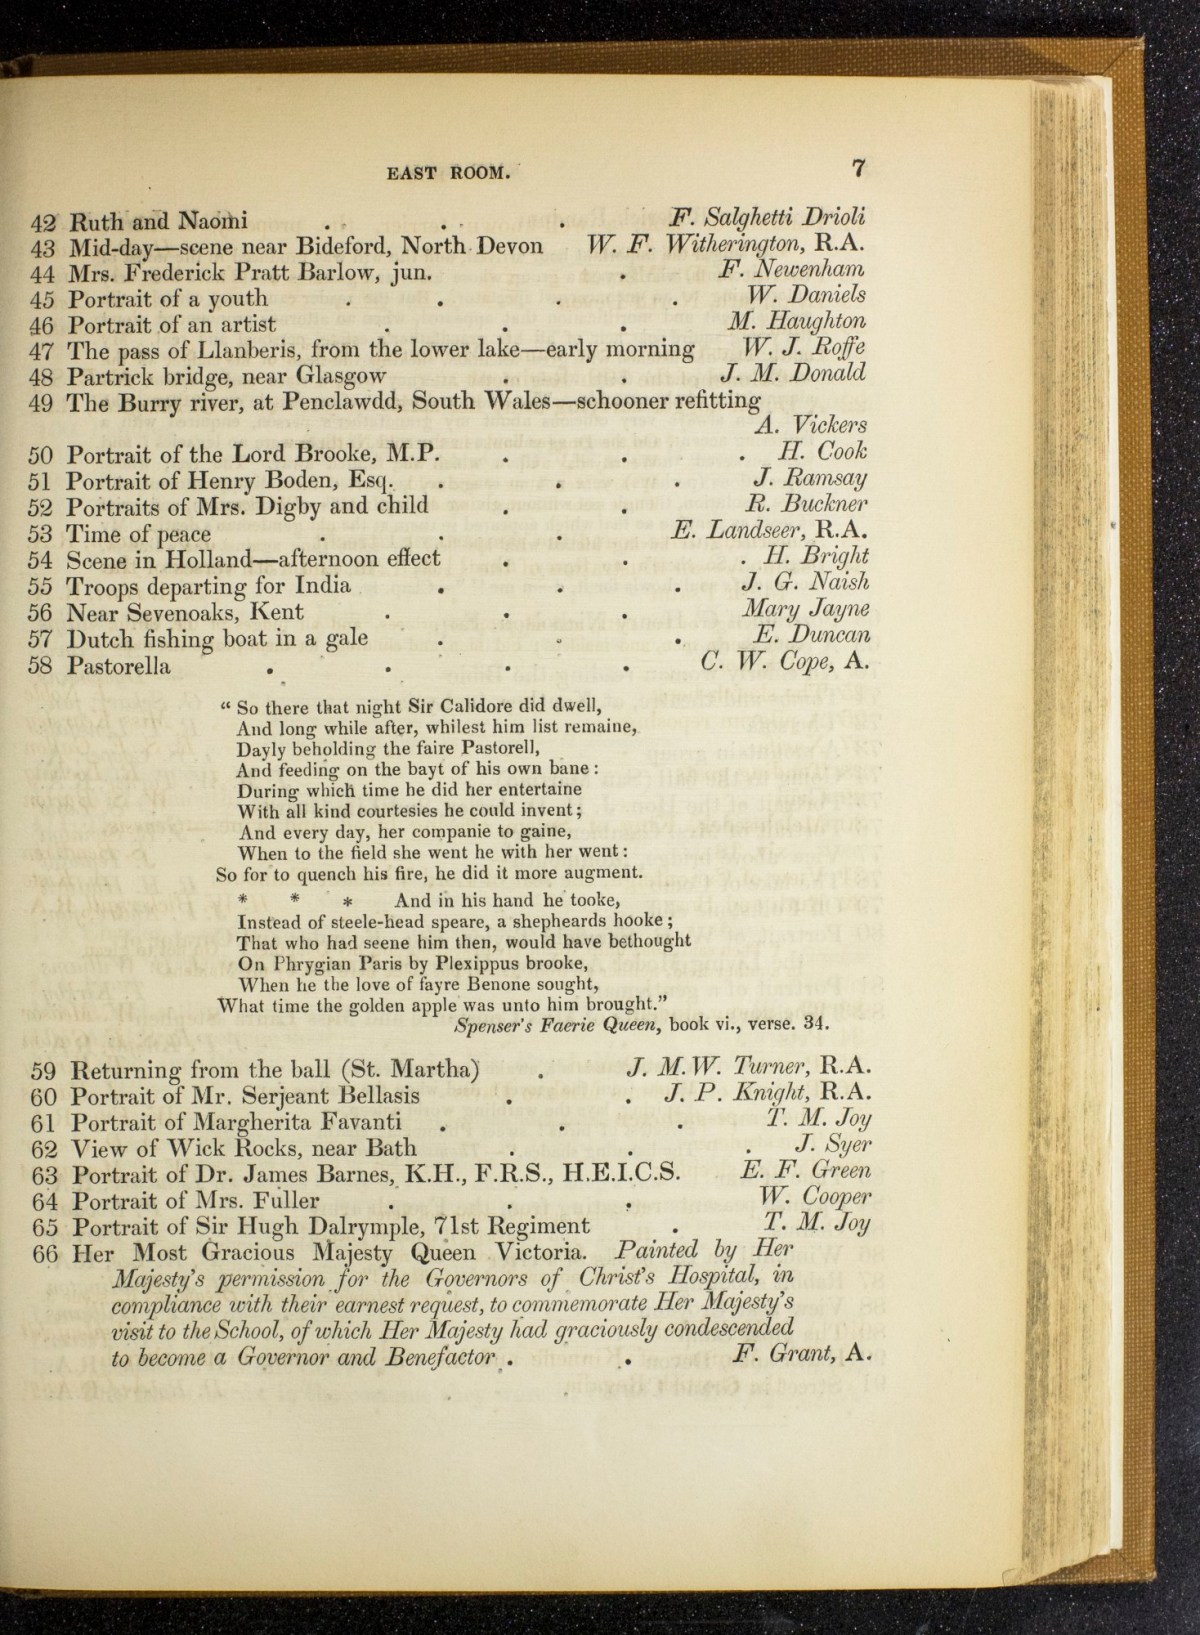 EAST ROOM. 7
42 Ruth and Naomi . . . F. Salghetti Drioli
43 Mid-day—scene near Bideford, North Devon W. F. Witherington, R.A.
44 Mrs. Frederick Pratt Barlow, jun. . F. Newenham
45 Portrait of a youth . . . . W. Daniels
46 Portrait of an artist . . . M. Haughton
47 The pass of Llanberis, from the lower lake—early morning W. J. Roffe
48 Partrick bridge, near Glasgow . . J. M. Donald
49 The Burry river, at Penclawdd, South Wales—schooner refitting
A. Vickers
50 Portrait of the Lord Brooke, M.P. . . . H. Cook
51 Portrait of Henry Boden, Esq. . . . J. Ramsay
52 Portraits of Mrs. Digby and child . . R. Buckner
53 Time of peace . . . E. Landseer, R.A.
54 Scene in Holland—afternoon effect . . . H. Bright
55 Troops departing for India . . . J. G. Naish
56 Near Sevenoaks, Kent . . . Mary Jayne
57 Dutch fishing boat in a gale . . . E. Duncan
58 Pastorella . . . . C. W. Cope, A.
“ So there that night Sir Calidore did dwell,
And long while after, whilest him list remaine,
Dayly beholding the faire Pastorell,
And feeding on the bayt of his own bane :
During which time he did her entertaine
With all kind courtesies he could invent ;
And every day, her companie to gaine,
When to the field she went he with her went :
So for to quench his fire, he did it more augment.
* * * And in his hand he tooke,
Instead of steele-head speare, a shepheards hooke ;
That who had seene him then, would have bethought
On Phrygian Paris by Plexippus brooke,
When he the love of fayre Benone sought,
What time the golden apple was unto him brought.”
Spenser's Faerie Queen, book vi., verse. 34.
59 Returning from the ball (St. Martha) . J. M. W. Turner, R.A.
60 Portrait of Mr. Serjeant Bellasis . . J. P. Knight, R.A.
61 Portrait of Margherita Favanti . . . T. M. Joy
62 View of Wick Rocks, near Bath . . . J. Syer
63 Portrait of Dr. James Barnes, K.H., F.R.S., H.E.I.C.S. E. F. Green
64 Portrait of Mrs. Fuller . . . W. Cooper
65 Portrait of Sir Hugh Dalrymple, 71st Regiment . T. M. Joy
66 Her Most Gracious Majesty Queen Victoria. Painted by Her
Majesty's permission for the Governors of Christ's Hospital, in
compliance with their earnest request, to commemorate Her Majesty's
visit to the School, of which Her Majesty had graciously condescended
to become a Governor and Benefactor . . F. Grant, A.